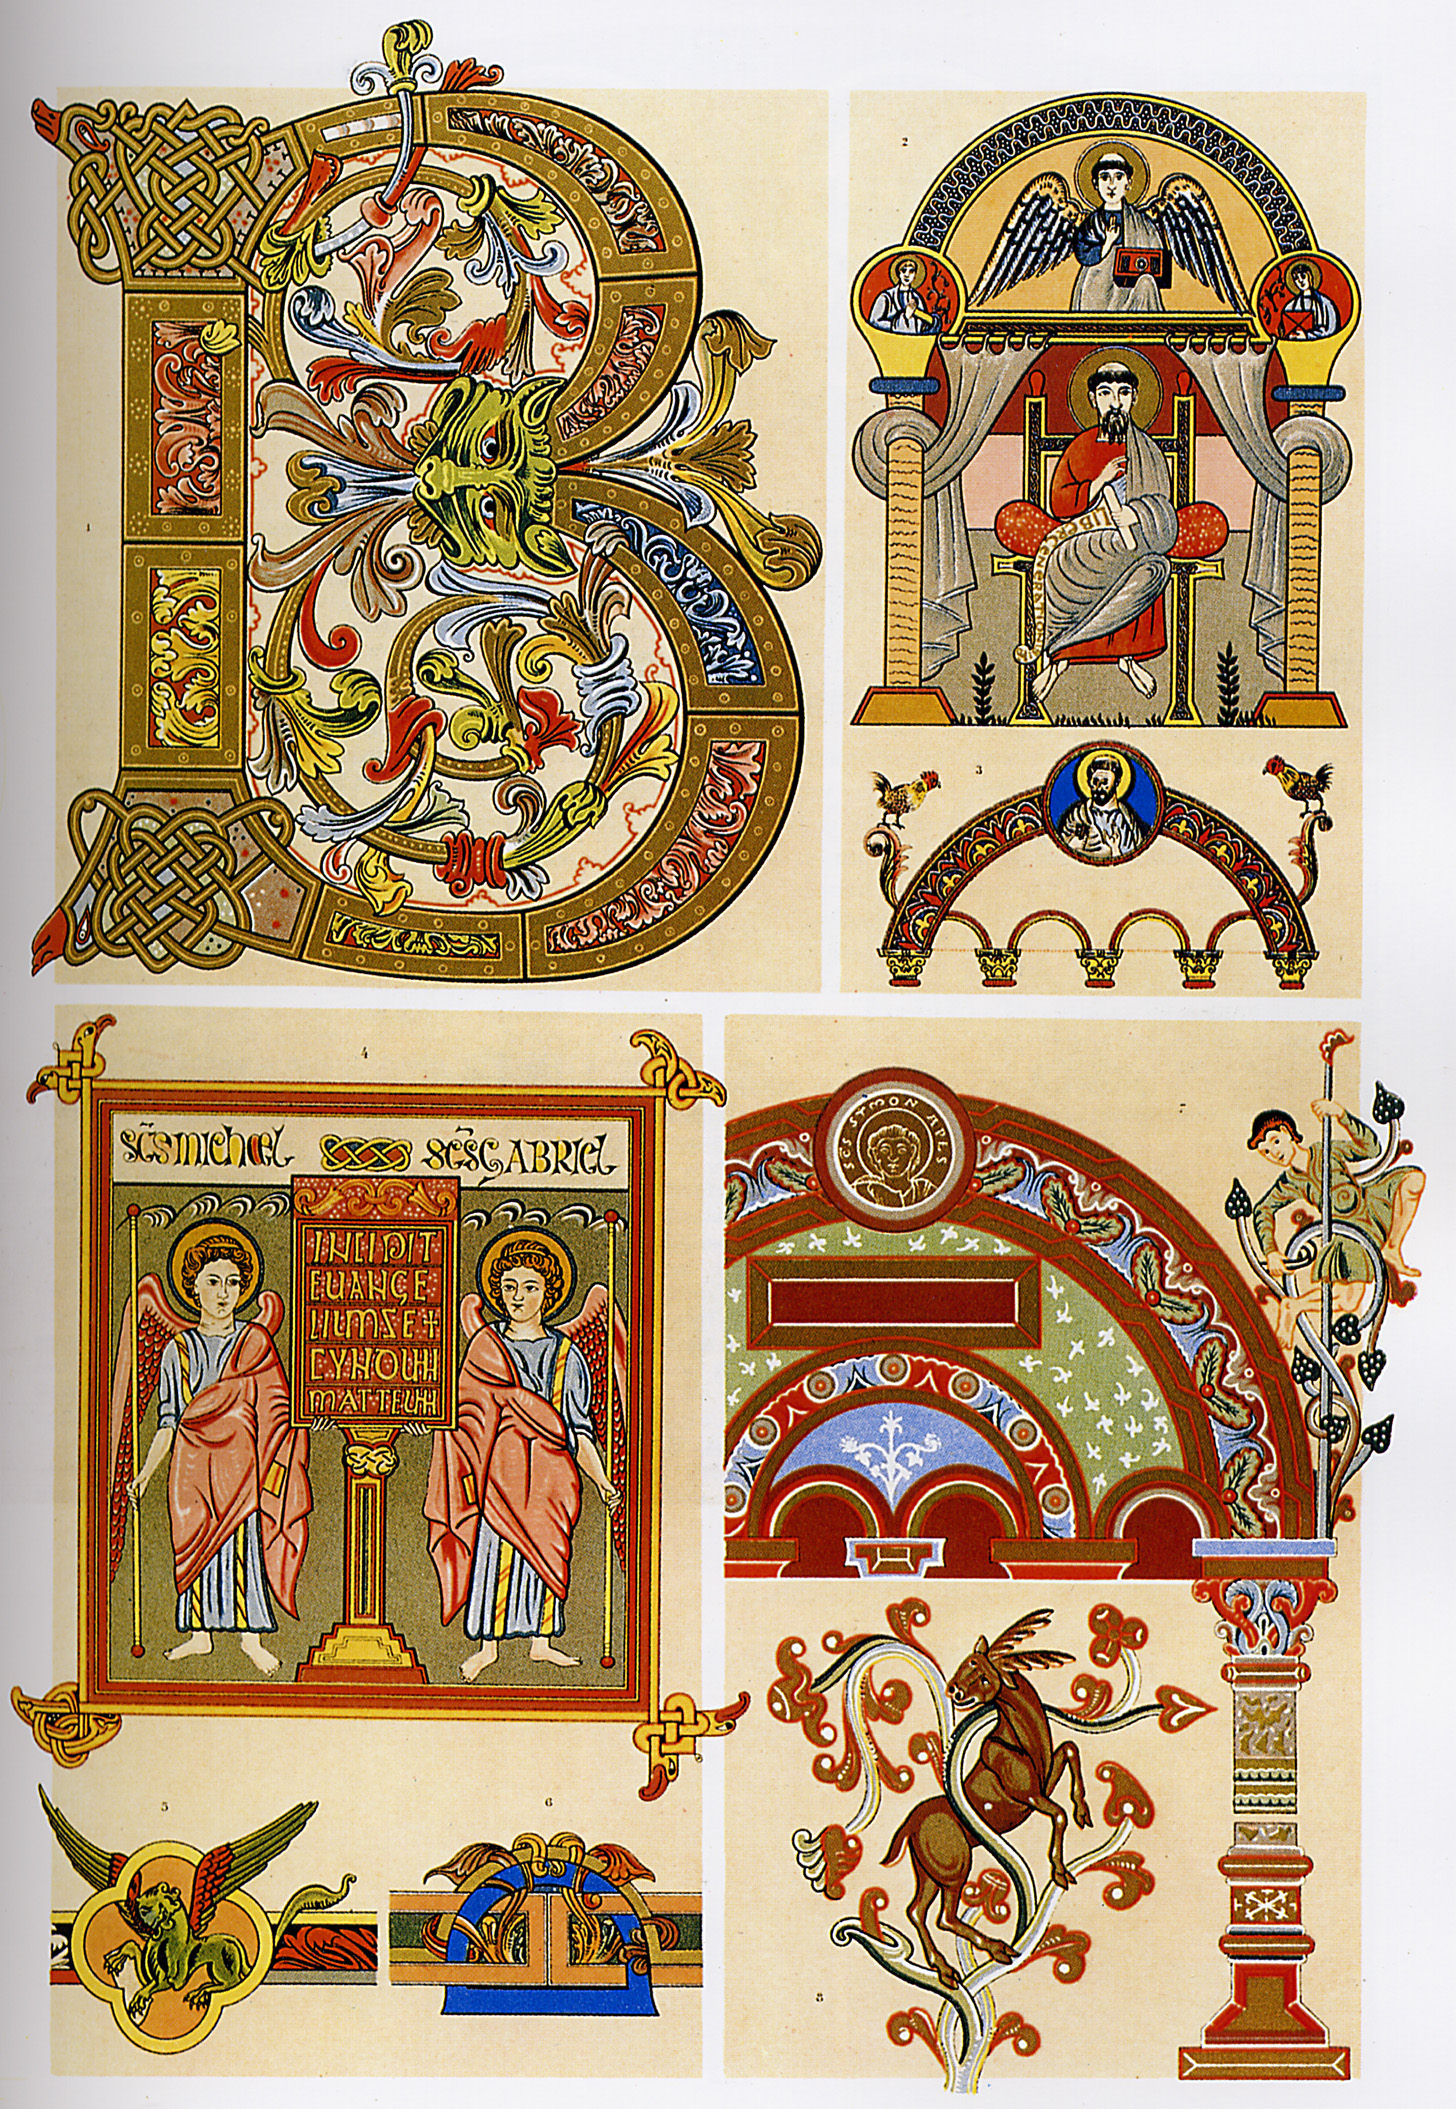 1
2
LIBER GENERATIONIS
3
4
SC̄S MICHAEL SC̄S GABRIEL
INCIPIT
EUANGE
LIUM SE+
CVNDUM
MAT·TEUM
7
SCS SYMON APLS
5
6
8